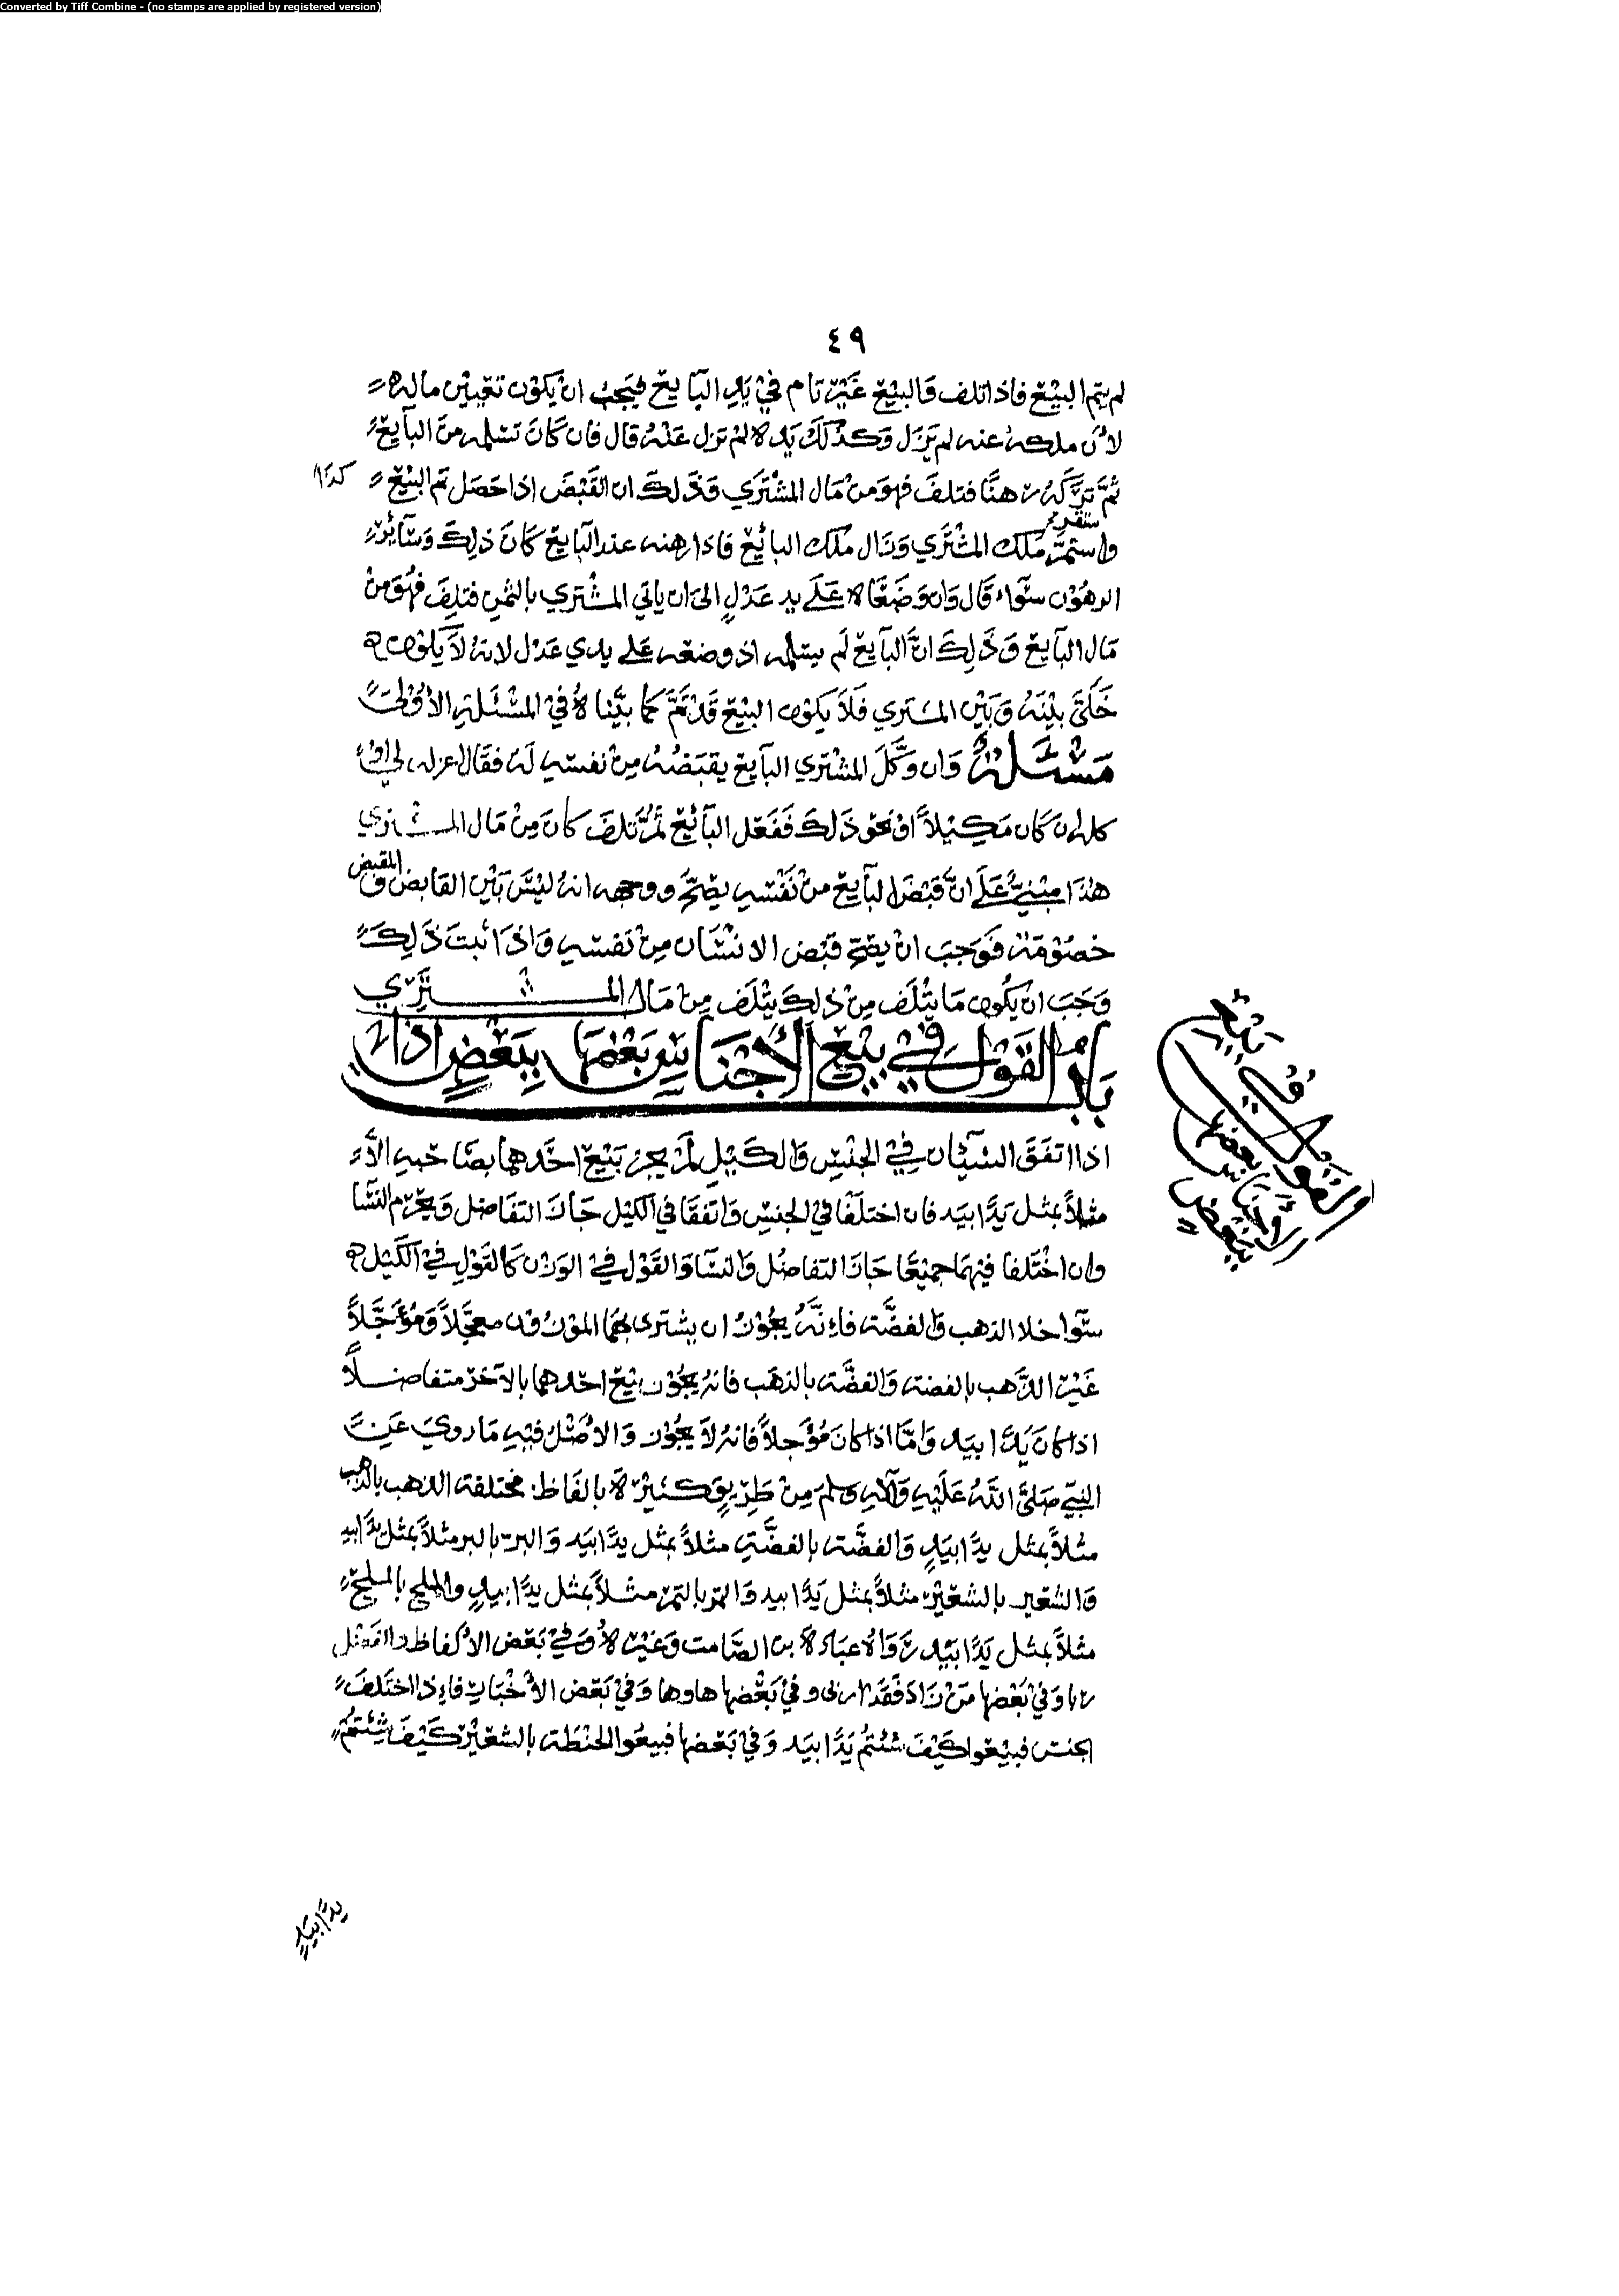 Converted by Tiff Combine - (no stamps are applied by registered version)
٤٩
لم يتم البيع فاذا تلف والبيع غير تام في يد البايع فيجب ان يكون تعيين ماله
لأن ملكه عنه لم يزل وكذلك يده لم تزل عنه قال فان كان تسلمه من البايع
ثم تركه رهنا فتلف فهو من مال المشتري وذلك ان القبض اذا حصل تم البيع
كذا
ستقر
واستمر ملك المشتري وزال ملك البائع فاذا رهنه عند البايع كان ذلك وسائر
الرهون سواء قال وان وضعاه على يد عدل الى ان ياتي المشتري بالثمن فتلف فهو من
مال البايع وذلك ان البايع لم يسلمه اذ وضعه على يدي عدل لانه لا يكون
خلى بينه وبين المشتري فلا يكون البيع قد تم كما بيناه في المسئلة الأولى
مسئلة وان وكل المشتري البايع يقبضه من نفسه له فقال عزله لي او
كله ان كان مكيلا او نحو ذلك ففعل البائع ثم تلف كان من مال المشتري
هذا مبني على ان قبض البايع من نفسه يصح ووجهه انه ليس بين القابض و المقبض
خصومة فوجب ان يصح قبض الانسان من نفسه واذا ثبت ذلك
وجب ان يكون ما يتلف من ذلك يتلف من مال المشتري
باب القول في بيع الأجناس بعضها ببعض اذا
القول في بيع الاجناس بعضها ببعض
اذا اتفق الشيئان في الجنس والكيل لم يجز بيع احدهما بصاحبه الا
مثلا بمثل يدا بيد فان اختلفا في الجنس واتفقا في الكيل جاز التفاضل ويحرم النسا
وان اختلفا فيهما جميعا جاز التفاضل والنسا والقول في الوزن كالقول في الكيل
سوا خلا الذهب والفضة فإنه يجوز ان يشترى بهما الموزون معجلا ومؤجلا
غير الذهب بالفضة والفضة بالذهب فانه يجوز بيع احدهما بالآخر متفاضلا
اذا كان يدا بيد واما اذا كان مؤجلا فانه لا يجوز والاصل فيه ما روي عن
النبي صلى الله عليه وآله وسلم من طريق كثيرة بالفاظ مختلفة الذهب بالذهب
مثلا بمثل يدا بيد والفضة بالفضة مثلا بمثل يدا بيد والبر بالبر مثلا بمثل يدا بيد
والشعير بالشعير مثلا بمثل يدا بيد والتمر بالتمر مثلا بمثل يدا بيد والملح بالملح
مثلا بمثل يدا بيد رواه عبادة بن الصامت وغيره وفي بعض الالفاظ والفضل
ربا وفي بعضها من زاد فقد اربى وفي بعضها ها وها وفي بعض الأخبار فإذا اختلف
الجنس فبيعوا كيف شئتم يدا بيد وفي بعضها فبيعوا الحنطة بالشعير كيف شئتم
يدا بيد